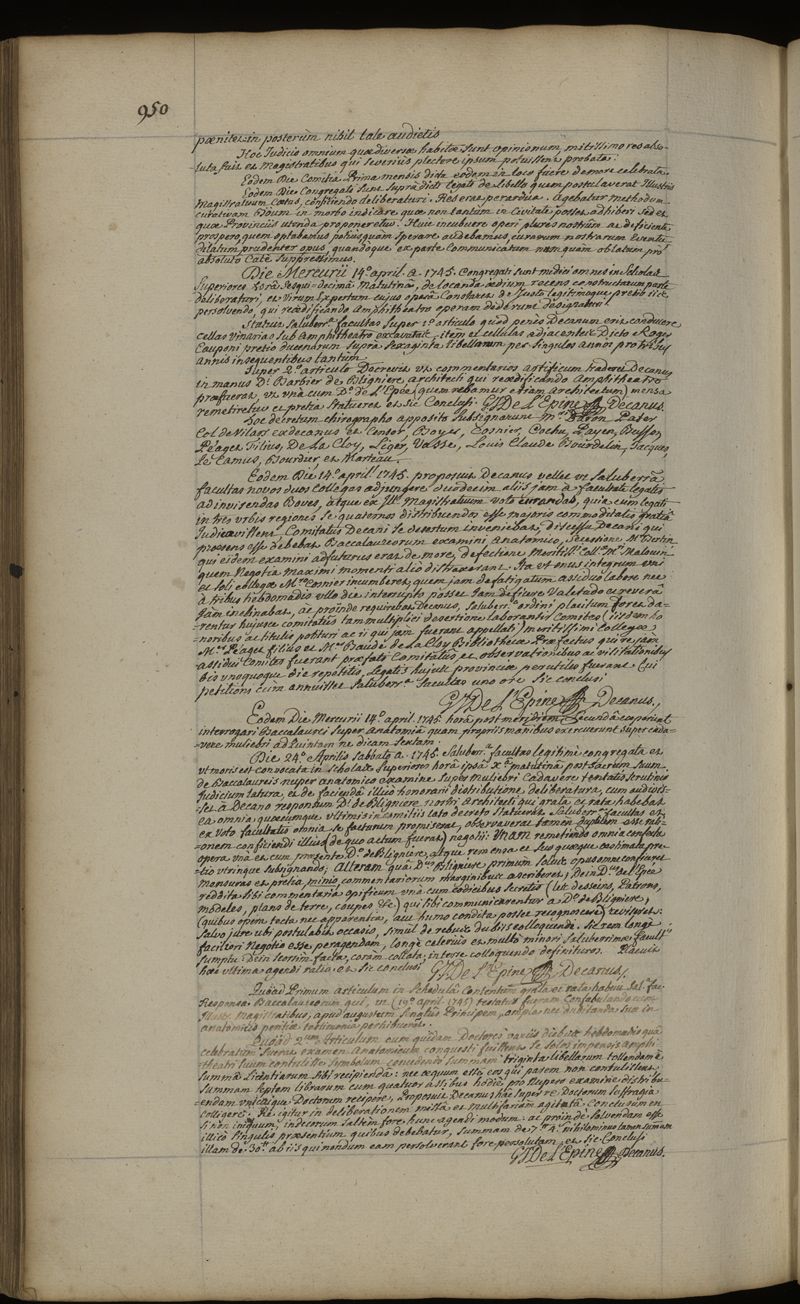 950
pœnitet in posterum nihil tale audietis
Hoc Judicio omnium quæ diversæ habitæ sunt opinionum, mitissimo res abso-
luta fuit et Magistratibus qui severius plectere ipsum potuissent probata.
Eodem Die Comitia Prima mensis dicta eodem in loco fuere de more celebrata.
Eodem Die Congregati sunt supradicti legati de libello quem postulaverat Illustris
Magistratuum Cœtus, conficiendo deliberaturi. Res erat perardua. Agebatur methodum
curativam Boum in morbo indicare quæ non tantum in Civitate posset adhiberi sed et
quæ Provinciis utenda proponeretur. Huic incubuere operi plures nostrum ac deficiente
prospero quem optabamus potiusquam sperare audebamus curarum nostrarum eventu
dilatum prudenter opus, quandoque ex parte Communicatum nunquam oblatum pro
absoluto Cautè suppressimus.
Die Mercurii 14° april. a. 1745. Congregati sunt medici omnes in Scholas
Superiores horâ sesqui-decimâ matutinâ, de locanda ædium recens constructarum parte
deliberaturi, et Virum Expertum cujus operâ Constaret de Justo legitimoque pretio iis
persolvendo, qui reædificando Amphitheatro operam dederunt designaturi.
Statuit saluberr.ª facultas super 1.° articulo quod penès Decanum erit conducere
cellas Vinarias sub Amphitheatro excavatas, item et cellulas adjacentes Dicto Roger
Cauponi pretio ducentarum supra sexaginta libellarum per singulos annos pro tribus
annis insequentibus tantùm.
Super 2.° articulo Decrevit ut commentarios artificum traderet Decanus
in manus D.ⁱ Barbier de Bligniere architecti qui reædificando Amphitheatro
præfuerat, ut una cum D.° de L'Epée (quem rebamur etiam architectum) mensa
remetiretur et pretia statueret et sic Conclusi G.J. De L'Epine Decanus.
Hoc decretum chirographo apposito subsignarunt M.ʳⁱ Pater
Col de Vilars exdecanus et Censor, Boyer, Cosnier, Cochu, Payen, Busson
Péaget filius, De La Cloy, Léger, Vasse, Louis Claude Bourdelin, Jacques
Le Camus, Bourdier et Marteau.
Eodem Die 14.° april. 1745. proposuit Decanus velles ut saluberrª
facultas novos duos Collegas adjungere duodecim aliis jam à facultate legatis
ad invisendas Boves, atque ex Ill. Magistratuum voto curandos, quia cum legati
in tres urbis regiones se quaternos distribuendos esse majoris commoditatis gratiâ
Judicavissent, Comitatus Decani se desertum inveniebat, discessu Decani qui
præsens esse debebat Baccalaureorum examini Anatomico, secessione M.ʳⁱ Bertin
qui eidem examini adfuturus erat de more, defectione Meritiss.ⁱ Coll.ª M.ʳⁱ Malouin
quem Negotia maximi momenti aliò distraxerant. Ita ut onus integrum uni
et soli collegæ M.ʳᵒ Cosnier incumberet, quem jam defatigatum assiduo labore nec
à tribus hebdomadis ullo die interrupto posset jam deficere Valetudo ut reverâ
jam inclinabat, ac proinde requirebat Decanus, saluberr.° ordini placitum foret da-
rentur hujusce comitatûs tam multiplici desertione laborantis Comites (iisdem ho
-noribus ac titulis potituri ac ii qui jam fuerant appellati) meritissimi Collegæ
M.ʳ Péaget filius et M.ʳ Baude de La Cloy Bibliothecæ Præfectus qui et jam
assidui Comites fuerant præfati Comitatûs, et observationibus ac visitationibus
bis unoquoque die repetitis, Legatis hujusce provinciæ perutiles fuerant. Cui
petitioni cum annuisset Saluberr.ª facultas uno ore sic conclusi
G.J. De L'Epine Decanus.
Eodem Die Mercurii 14.° april. 1745. horâ post meridiem secundâ cœperunt
interrogari Baccalaurei super Anatomiâ quam propriis manibus exercuerunt super cada-
-vere muliebri ad Quintam ne dicam Sextam.
Die 24.° Aprilis sabbato a. 1745. saluberr.ª facultas legitimè congregata et
ut moris est convocata in scholas superiores horâ ipsâ X.ª matutinâ post sacrum suum
de Baccalaureis nuper anatomico examine super Muliebri Cadavere tentatis scrutinio
Judicium latura, et de faciendâ illius honorarii distributione, deliberatura, cum audivis-
-set à Decano responsum D.ⁱ de Bligniere nostri Architecti qui grata et rata habebat
ea omnia quæcumque ultimis in comitiis lato decreto statuerat Saluberr.ª facultas et
ex voto facultatis omnia se facturum promiserat, observaverat tamen duplicem esse rati-
-onem conficiendi illius (de quo actum fuerat) negotii: Unam remetiendo omnia confecta
opera una et cum præsente D.° de Bligniere, atque remensa et sua quæque æstimata pre-
-tio utrinque subsignando; Alteram quâ D.ⁿᵘˢ Bligniere primum solus opus omne conficeret
mensuras et pretia, minio, commentariorum marginibus ascriberet; Dein D.ⁿᵘˢ de L'Epée
reddita sibi commentaria opificum unà cum codicibus secretis (les desseins, Patrons,
modeles, plans de terre, coupes &c) qui sibi communicarentur a D.° de Bligniere,
(quibus opera tecta nec apparentia, aut humo condita posset recognoscere) revisset:
Salvo jure ubi postulabit occasio, simul de rebus dubiis colloquendi. Sic rem longè
faciliori Negotio esse peragendam, longè celerius et multò minori saluberrimæ facult.ⁱˢ
sumptu. Dein seorsim facta, coram collata, inter se colloquendo definituros. Placuit
hæc ultima agendi ratio et sic conclusi G.J. De L'Epine Decanus.
Quoad Primum articulum in schedulâ Contentum grata et rata habuit Sal.ª fac.
Responsa Baccalaureorum qui, ut (19° april. 1745) testatus fueram Confabulando cum
Illustr. Magistratibus, apud augustum Senatûs Principem, ampla nec dubitanda suæ in
anatomicis peritiæ testimonia perhibuerat.
Quoad 2.ᵘᵐ Articulum cum quidam Doctores variis diebus hebdomadis quâ
celebratum fuerat examen Anatomicum conquesti fuissent se solos impensis amphi-
theatri suum contulisse symbolum concedendo summam triginta libellarum tollendam è
summâ Licentiarum sibi recipiendâ: nec æquum esse eos qui parem non contulissent
summam septem librarum cum quatuor assibus hodiè pro nupero examine distribu-
endam unicuique Doctorum recipere, Proposuit Decanus hâc super re Doctorum suffragia
colligere. Re igitur in deliberationem missâ et multifariam agitatâ Conclusum est
si non iniquum, indecorum saltem fore hunc agendi modum: ac proindè solvendam esse
illicò singulis præsentium quibus debebatur, summam de 7.ᵗᵗ 4.ˢ nihilominùs tamen summam
illam de 30.ᵗᵗ ab iis qui nondum eam persolverant fore persolutam, et sic Conclusi
G.J. De L'Epine Decanus.